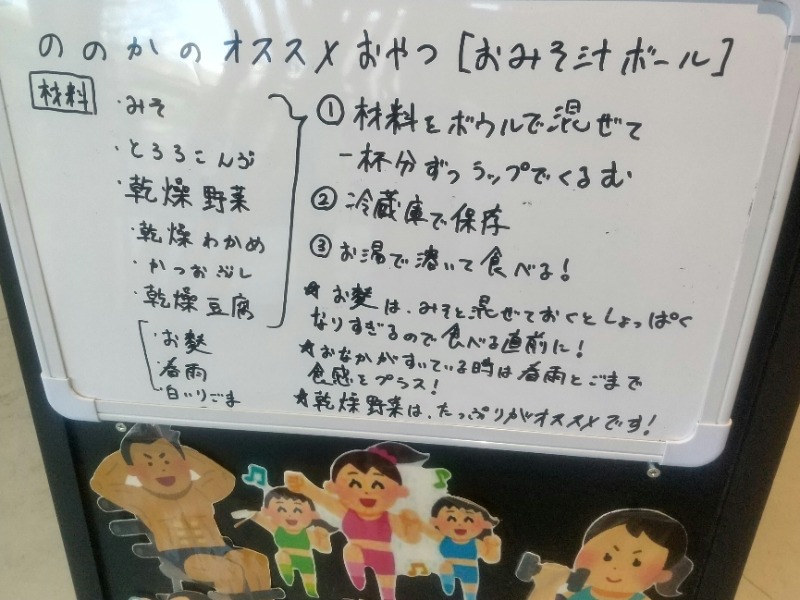 ののかのオススメおやつ[おみそ汁ボール]
材料
・みそ
・とろろこんぶ
・乾燥野菜
・乾燥わかめ
・かつおぶし
・乾燥豆腐
・お麩
・春雨
・白いりごま
① 材料をボウルで混ぜて
一杯分ずつラップでくるむ
② 冷蔵庫で保存
③ お湯で溶いて食べる!
★お麩は、みそと混ぜておくとしょっぱく
なりすぎるので食べる直前に!
★おなかがすいている時は春雨とごまで
食感をプラス!
★乾燥野菜は、たっぷりがオススメです!